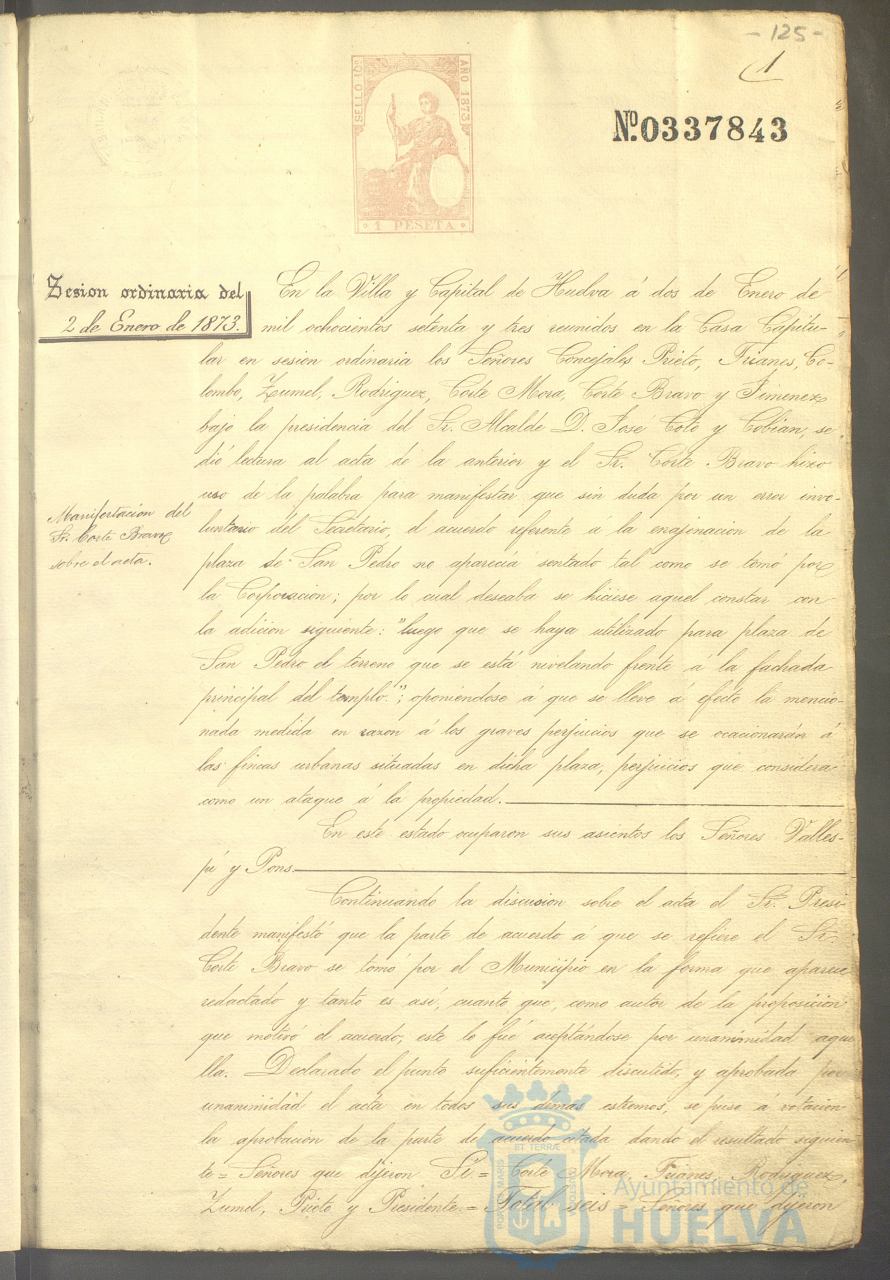 - 125 -
1
SELLO 10º
AÑO 1873
1 PESETA
Nº. 0337843
Sesion ordinaria del
2 de Enero de 1873.
En la Villa y Capital de Huelva á dos de Enero de
mil ochocientos setenta y tres reunidos en la Casa Capitu-
lar en sesion ordinaria los Señores Concejales Prieto, Trianes, Co-
lombo, Zumel, Rodriguez, Corte Mora, Corte Bravo y Jimenez
bajo la presidencia del Sr. Alcalde D. José Coto y Cobian, se
dió lectura al acta de la anterior y el Sr. Corte Bravo hizo
uso de la palabra para manifestar que sin duda por un error invo-
luntario del Secretario, el acuerdo referente á la enajenacion de la
plaza de San Pedro no aparecia sentado tal como se tomó por
la Corporacion; por lo cual deseaba se hiciese aquel constar con
la adicion siguiente: "luego que se haya utilizado para plaza de
San Pedro el terreno que se está nivelando frente á la fachada
principal del templo."; oponiendose á que se lleve á efecto la mencio-
nada medida en razon á los graves perjuicios que se ocacionarán á
las fincas urbanas situadas en dicha plaza, perjuicios que considera
como un ataque á la propiedad.
Manifestacion del
Sr. Corte Bravo
sobre el acta.
En este estado ocuparon sus asientos los Señores Valles-
pí y Pons.
Continuando la discusion sobre el acta el Sr. Presi-
dente manifestó que la parte de acuerdo á que se refiere el Sr.
Corte Bravo se tomó por el Municipio en la forma que aparece
redactado y tanto es así, cuanto que, como autor de la proposicion
que motivó el acuerdo, este lo fué aceptándose por unanimidad aque
lla. Declarado el punto suficientemente discutido, y aprobada por
unanimidad el acta en todos sus demas estremos, se puso á votacion
la aprobacion de la parte de acuerdo citada dando el resultado siguien-
te = Señores que dijeron Sí = Corte Mora, Trianes, Rodriguez,
Zumel, Prieto y Presidente. = Total seis = Señores que dijeron
PORTUS MARIS ET TERRÆ CUSTODIA
Ayuntamiento de
HUELVA